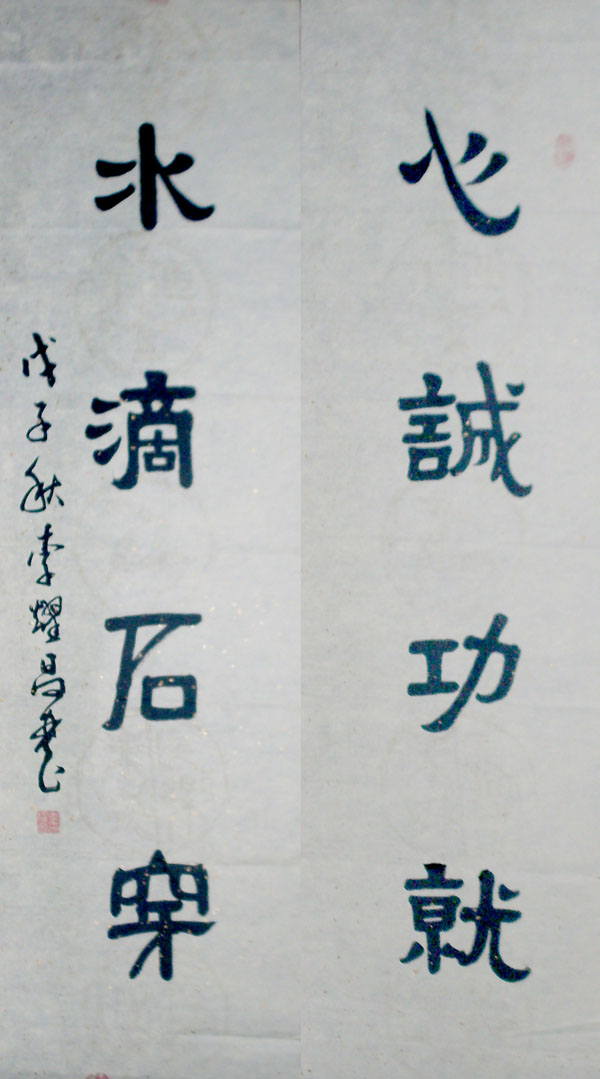 心誠功就
水滴石穿
戊子秋李耀昌書